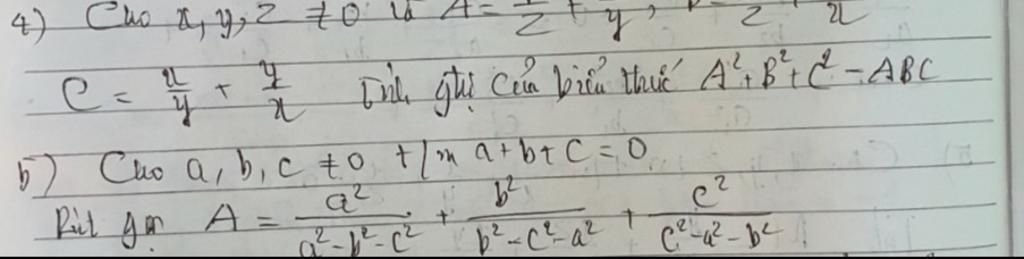 4) Cho x, y, z ≠ 0 và A = /z + /y, /z + /x
C = x/y + y/x Tính gtrị của biểu thức A² + B² + C² - ABC
5) Cho a, b, c ≠ 0 t/m a + b + c = 0
Rút gọn A = a²/(a² - b² - c²) + b²/(b² - c² - a²) + c²/(c² - a² - b²)